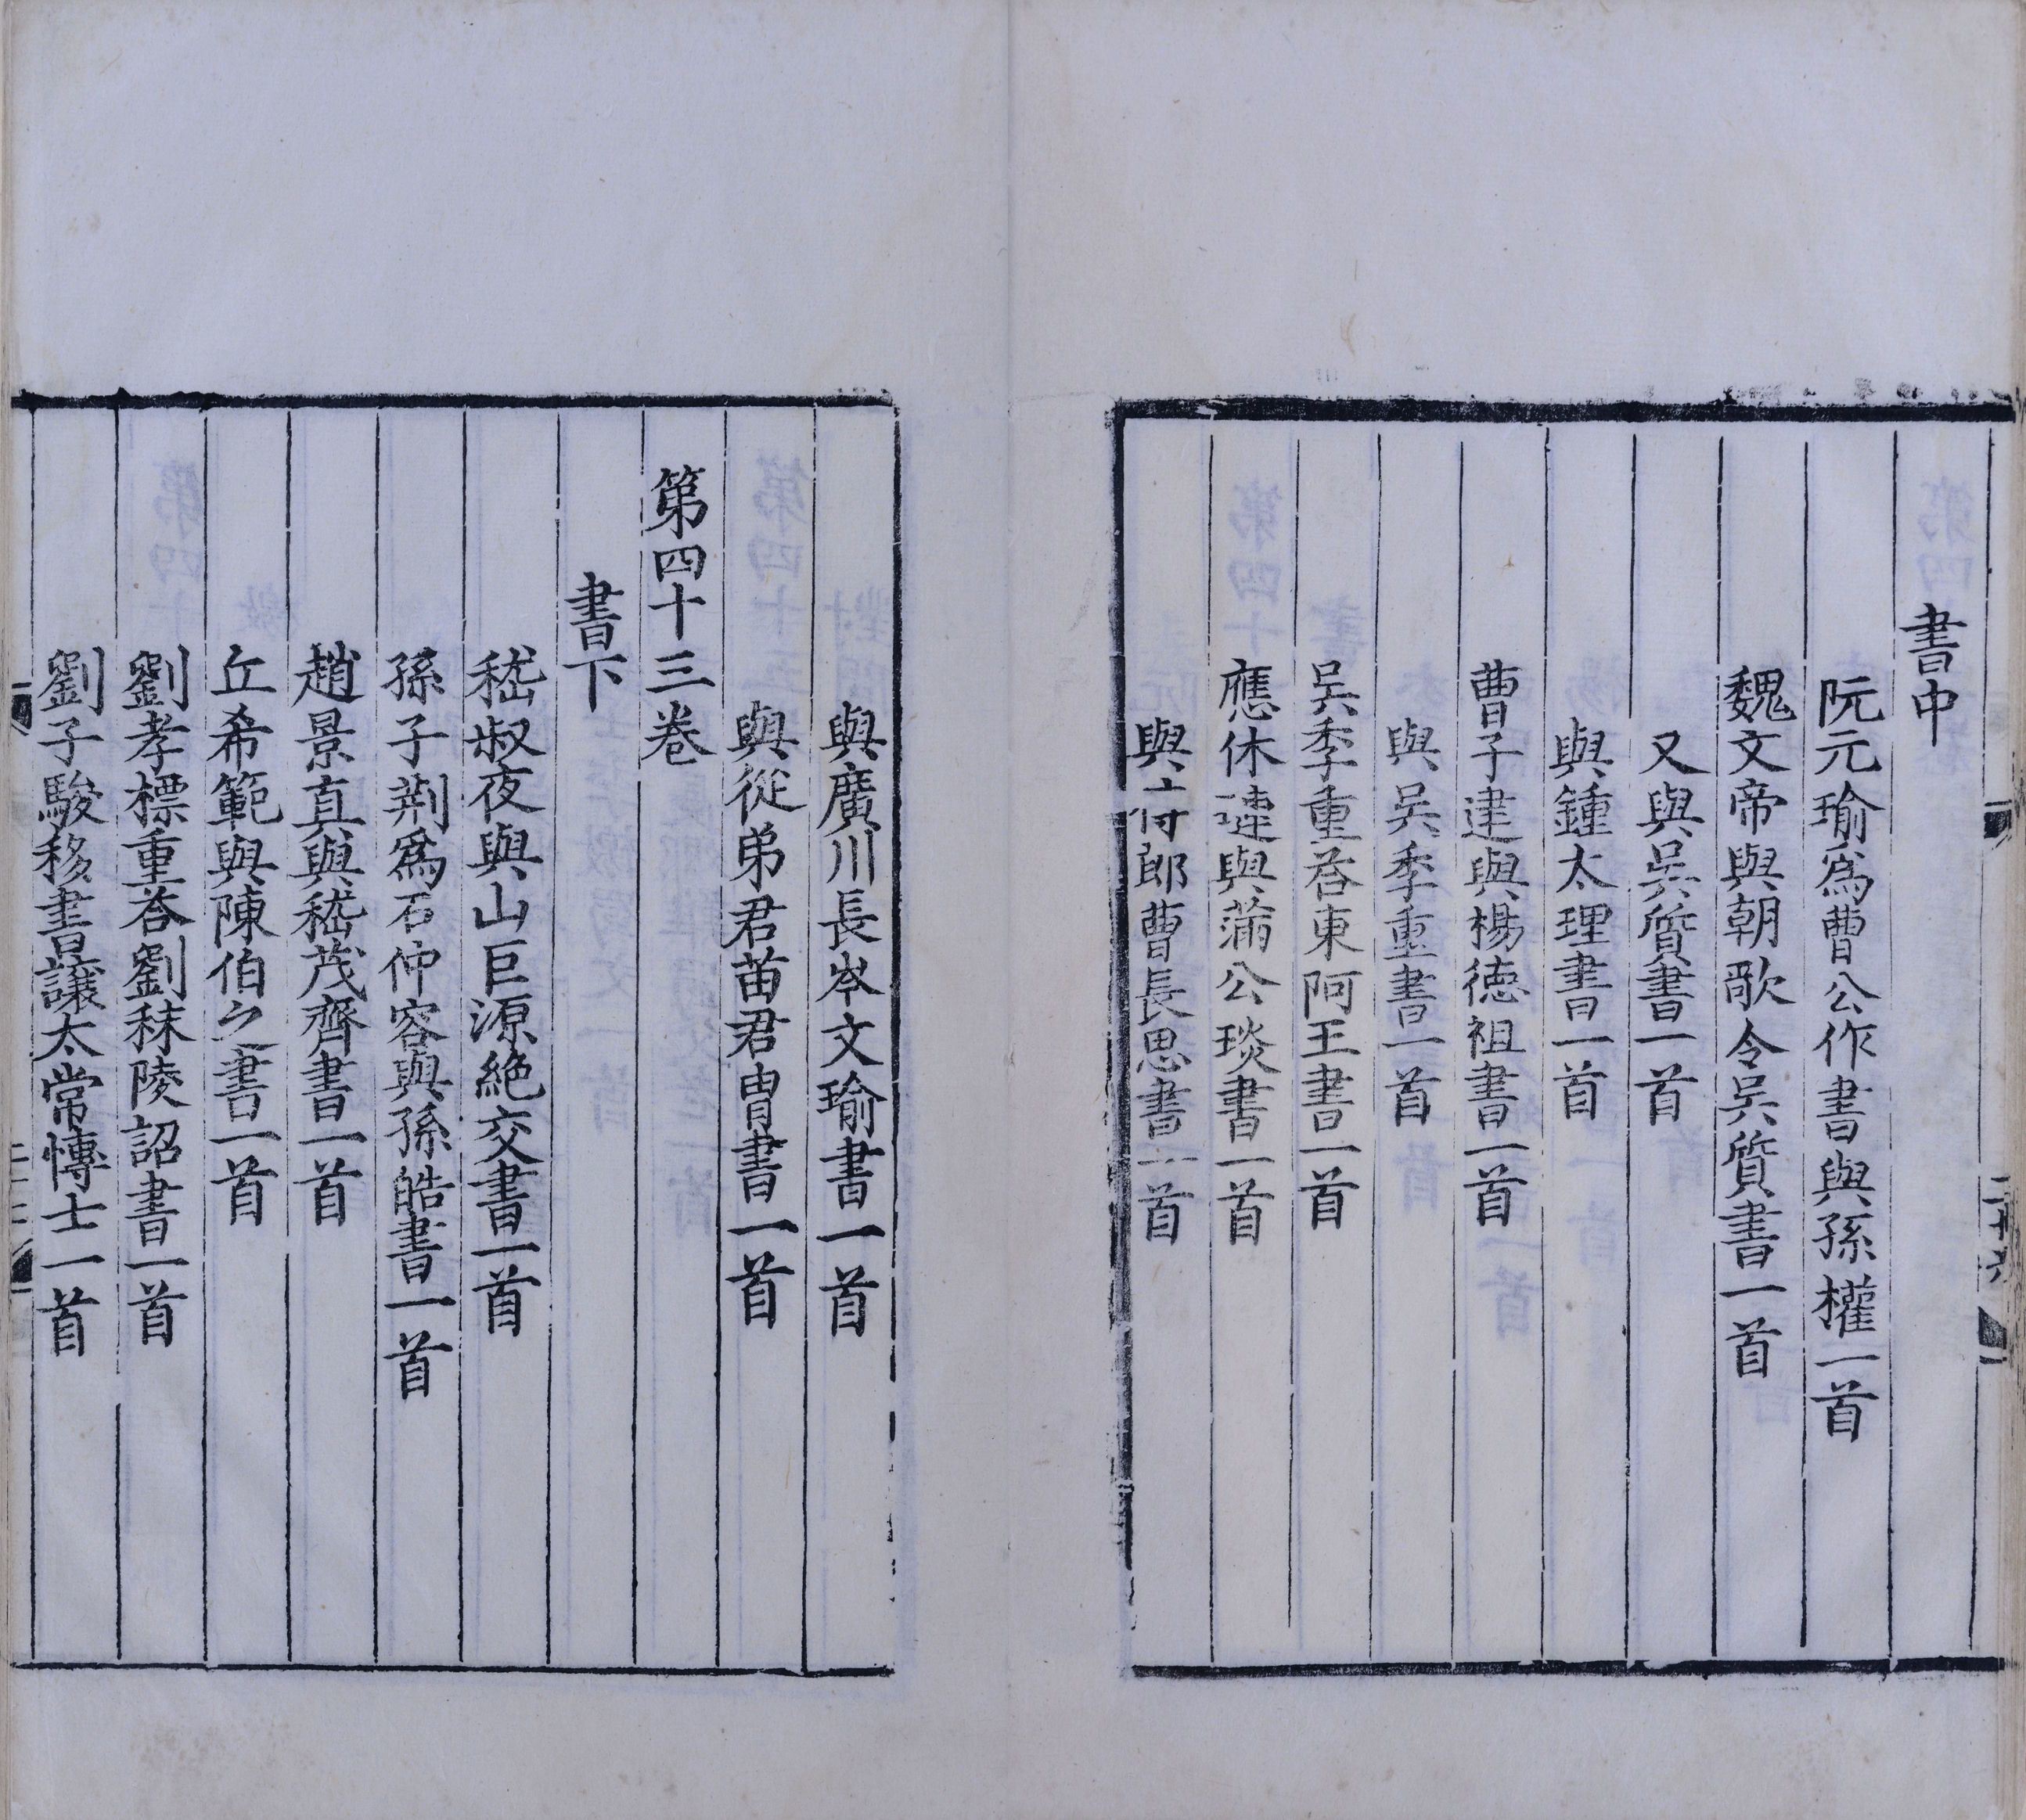 書中
阮元瑜爲曹公作書與孫權一首
魏文帝與朝歌令吳質書一首
又與吳質書一首
與鍾太理書一首
曹子建與楊德祖書一首
與吳季重書一首
吳季重荅東阿王書一首
應休璉與蒲公琰書一首
與侍郎曹長思書一首
與廣川長岑文瑜書一首
與從弟君苗君胄書一首
第四十三卷
書下
嵇叔夜與山巨源絶交書一首
孫子荆爲石仲容與孫皓書一首
趙景真與嵇茂齊書一首
丘希範與陳伯之書一首
劉孝標重荅劉秣陵詔書一首
劉子駿移書讓太常博士一首